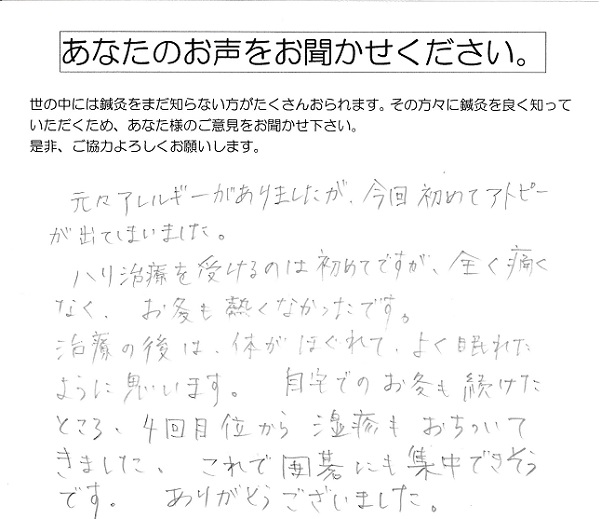 あなたのお声をお聞かせください。
世の中には鍼灸をまだ知らない方がたくさんおられます。その方々に鍼灸を良く知って
いただくため、あなた様のご意見をお聞かせ下さい。
是非、ご協力よろしくお願いします。
元々アレルギーがありましたが、今回初めてアトピー
が出てしまいました。
ハリ治療を受けるのは初めてですが、全く痛く
なく、お灸も熱くなかったです。
治療の後は、体がほぐれて、よく眠れた
ように思います。自宅でのお灸も続けた
ところ、4回目位から湿疹もおちついて
きました、これで囲碁にも集中できそう
です。ありがとうございました。